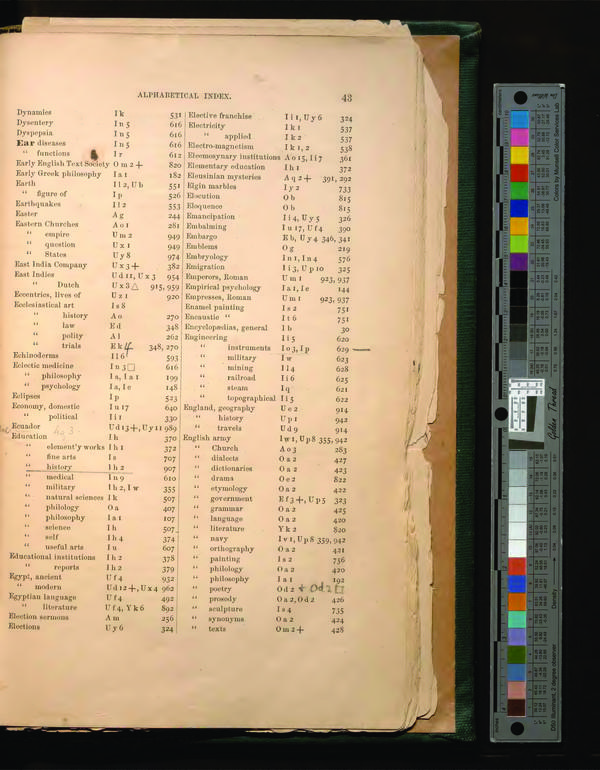 ALPHABETICAL INDEX. 43
Dynamics I k 531
Dysentery I n 5 616
Dyspepsia I n 5 616
Ear diseases I n 5 616
“ functions I r 612
Early English Text Society O m 2 + 820
Early Greek philosophy I a 1 182
Earth I l 2, U b 551
“ figure of I p 526
Earthquakes I l 2 553
Easter A g 244
Eastern Churches A o 1 281
“ empire U m 2 949
“ question U x 1 949
“ States U y 8 974
East India Company U x 3 + 382
East Indies U d 11, U x 3 954
“ Dutch U x 3 △ 915, 959
Eccentrics, lives of U z 1 920
Ecclesiastical art I s 8
“ history A o 270
“ law E d 348
“ polity A l 262
“ trials E k 4 348, 270
Echinoderms I l 6 593
Eclectic medicine I n 3 □ 616
“ philosophy I a, I a 1 199
“ psychology I a, I e 148
Eclipses I p 523
Economy, domestic I u 17 640
“ political I i 1 330
Ecuador U d 13 +, U y 11 989
Education I h 370
“ element'y works I h 1 372
“ fine arts I s 707
“ history I h 2 907
“ medical I n 9 610
“ military I h 2, I w 355
“ natural sciences I k 507
“ philology O a 407
“ philosophy I a 1 107
“ science I h 507
“ self I h 4 374
“ useful arts I u 607
Educational institutions I h 2 378
“ reports I h 2 379
Egypt, ancient U f 4 932
“ modern U d 12 +, U x 4 962
Egyptian language U f 4 492
“ literature U f 4, Y k 6 892
Election sermons A m 256
Elections U y 6 324
Elective franchise I i 1, U y 6 324
Electricity I k 1 537
“ applied I k 2 537
Electro-magnetism I k 1, 2 538
Eleemosynary institutions A o 15, I i 7 361
Elementary education I h 1 372
Eleusinian mysteries A q 2 + 391, 292
Elgin marbles I y 2 733
Elocution O b 815
Eloquence O b 815
Emancipation I i 4, U y 5 326
Embalming I u 17, U f 4 390
Embargo E b, U y 4 346, 341
Emblems O g 219
Embryology I n 1, I n 4 576
Emigration I i 3, U p 10 325
Emperors, Roman U m 1 923, 937
Empirical psychology I a 1, I e 144
Empresses, Roman U m 1 923, 937
Enamel painting I s 2 751
Encaustic “ I t 6 751
Encyclopædias, general I b 30
Engineering I i 5 620
“ instruments I o 3, I p 629
“ military I w 623
“ mining I l 4 628
“ railroad I i 6 625
“ steam I q 621
“ topographical I i 5 622
England, geography U e 2 914
“ history U p 1 942
“ travels U d 9 914
English army I w 1, U p 8 355, 942
“ Church A o 3 283
“ dialects O a 2 427
“ dictionaries O a 2 423
“ drama O e 2 822
“ etymology O a 2 422
“ government E f 3 +, U p 5 323
“ grammar O a 2 425
“ language O a 2 420
“ literature Y k 2 820
“ navy I v 1, U p 8 359, 942
“ orthography O a 2 421
“ painting I s 2 756
“ philology O a 2 420
“ philosophy I a 1 192
“ poetry O d 2 + Od2□
“ prosody O a 2, O d 2 426
“ sculpture I s 4 735
“ synonyms O a 2 424
“ texts O m 2 + 428